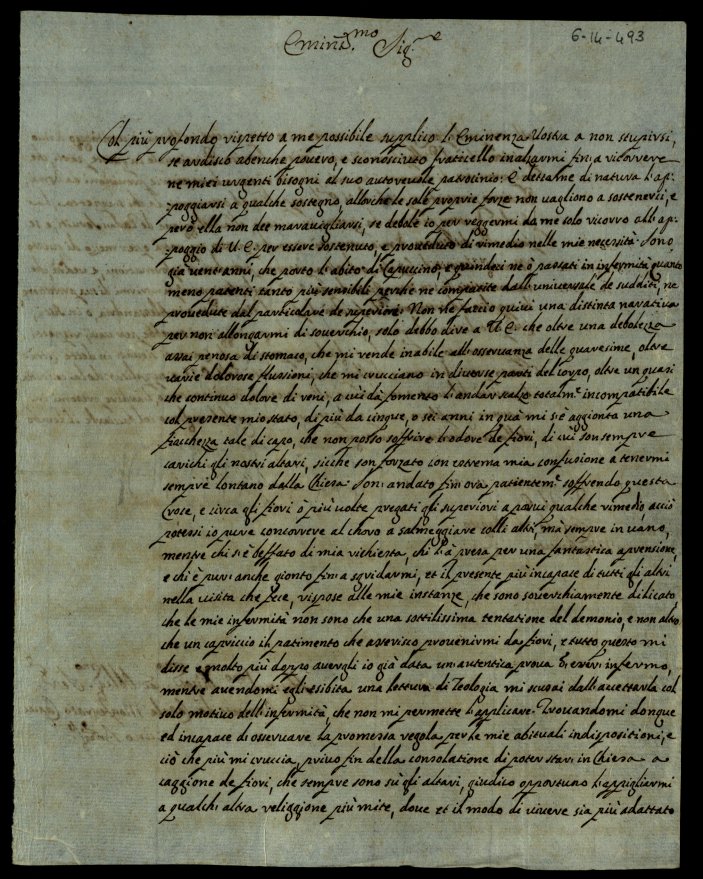 6-14-493
Emin.mo Sig.e
Col più profondo rispetto a me possibile supplico l'Eminenza Vostra a non stupirsi,
se ardisco abenche povero, e sconosciuto fraticello inalzarmi fin a ricorrere
ne miei urgenti bisogni al suo autorevole patrocinio: È dettame di natura l'ap-
poggiarsi a qualche sostegno, allorche le sole proprie forze non vagliono a sostenerci, e
però ella non dee maravigliarsi, se debole io per reggermi da me solo ricorro all'ap-
poggio di V. E. per essere sostenuto, e proveduto di rimedio nelle mie necessità. Sono
già vent'anni, che porto l'abito di Capuccino, e quindeci ne ò passati in infermità quanto
meno patenti tanto più sensibili perche ne compatite dall'universale de sudditi, ne
provedute dal particolare de superiori. Non ne faccio quivi una distinta narativa
per non allongarmi di soverchio, solo debbo dire a V. E. che oltre una debolezza
assai penosa di stomaco, che mi rende inabile all'osservanza delle quaresime, oltre
varie dolorose flussioni, che mi crucciano in diverse parti del corpo, oltre un quasi
che continuo dolore di reni, a cui dà fomento l'andar scalzo totalm.e incompatibile
col presente mio stato, di più da cinque, o sei anni in quà mi s'è aggionta una
fiacchezza tale di capo, che non posso soffrire l'odore de fiori, di cui son sempre
carichi gli nostri altari, sicche son forzato con estrema mia confusione a tenermi
sempre lontano dalla Chiesa. Son andato fin ora patientem.e soffrendo questa
croce, e circa gli fiori ò più volte pregati gli superiori a porvi qualche rimedio acciò
potessi io pure concorrere al choro a salmeggiare colli altri, mà sempre in vano,
mentre chi s'è beffato di mia richiesta, chi l'à presa per una fantastica aprensione,
e chi è pur anche gionto fin a sgridarmi, et il presente più incapace di tutti gli altri
nella visita che fece, rispose alle mie instanze, che sono soverchiamente dilicato,
che le mie infermità non sono che una sottilissima tentatione del demonio, e non altro
che un capriccio il patimento che asserisco provenirmi da fiori, e tutto questo mi
disse e molto più doppo avergli io già data un'autentica prova d'esser infermo,
mentre avendomi egli esibita una lettura di Teologia mi scusai dall'accettarla col
solo motivo dell'infermità, che non mi permette l'applicare. Trovandomi donque
ed incapace di osservare la promessa regola per le mie abituali indispositioni, e
ciò che più mi cruccia, privo fin della consolatione di poter star in Chiesa a
caggione de fiori, che sempre sono sù gli altari, giudico opportuno l'appigliarmi
a qualch'altra religgione più mite, dove et il modo di vivere sia più adattato